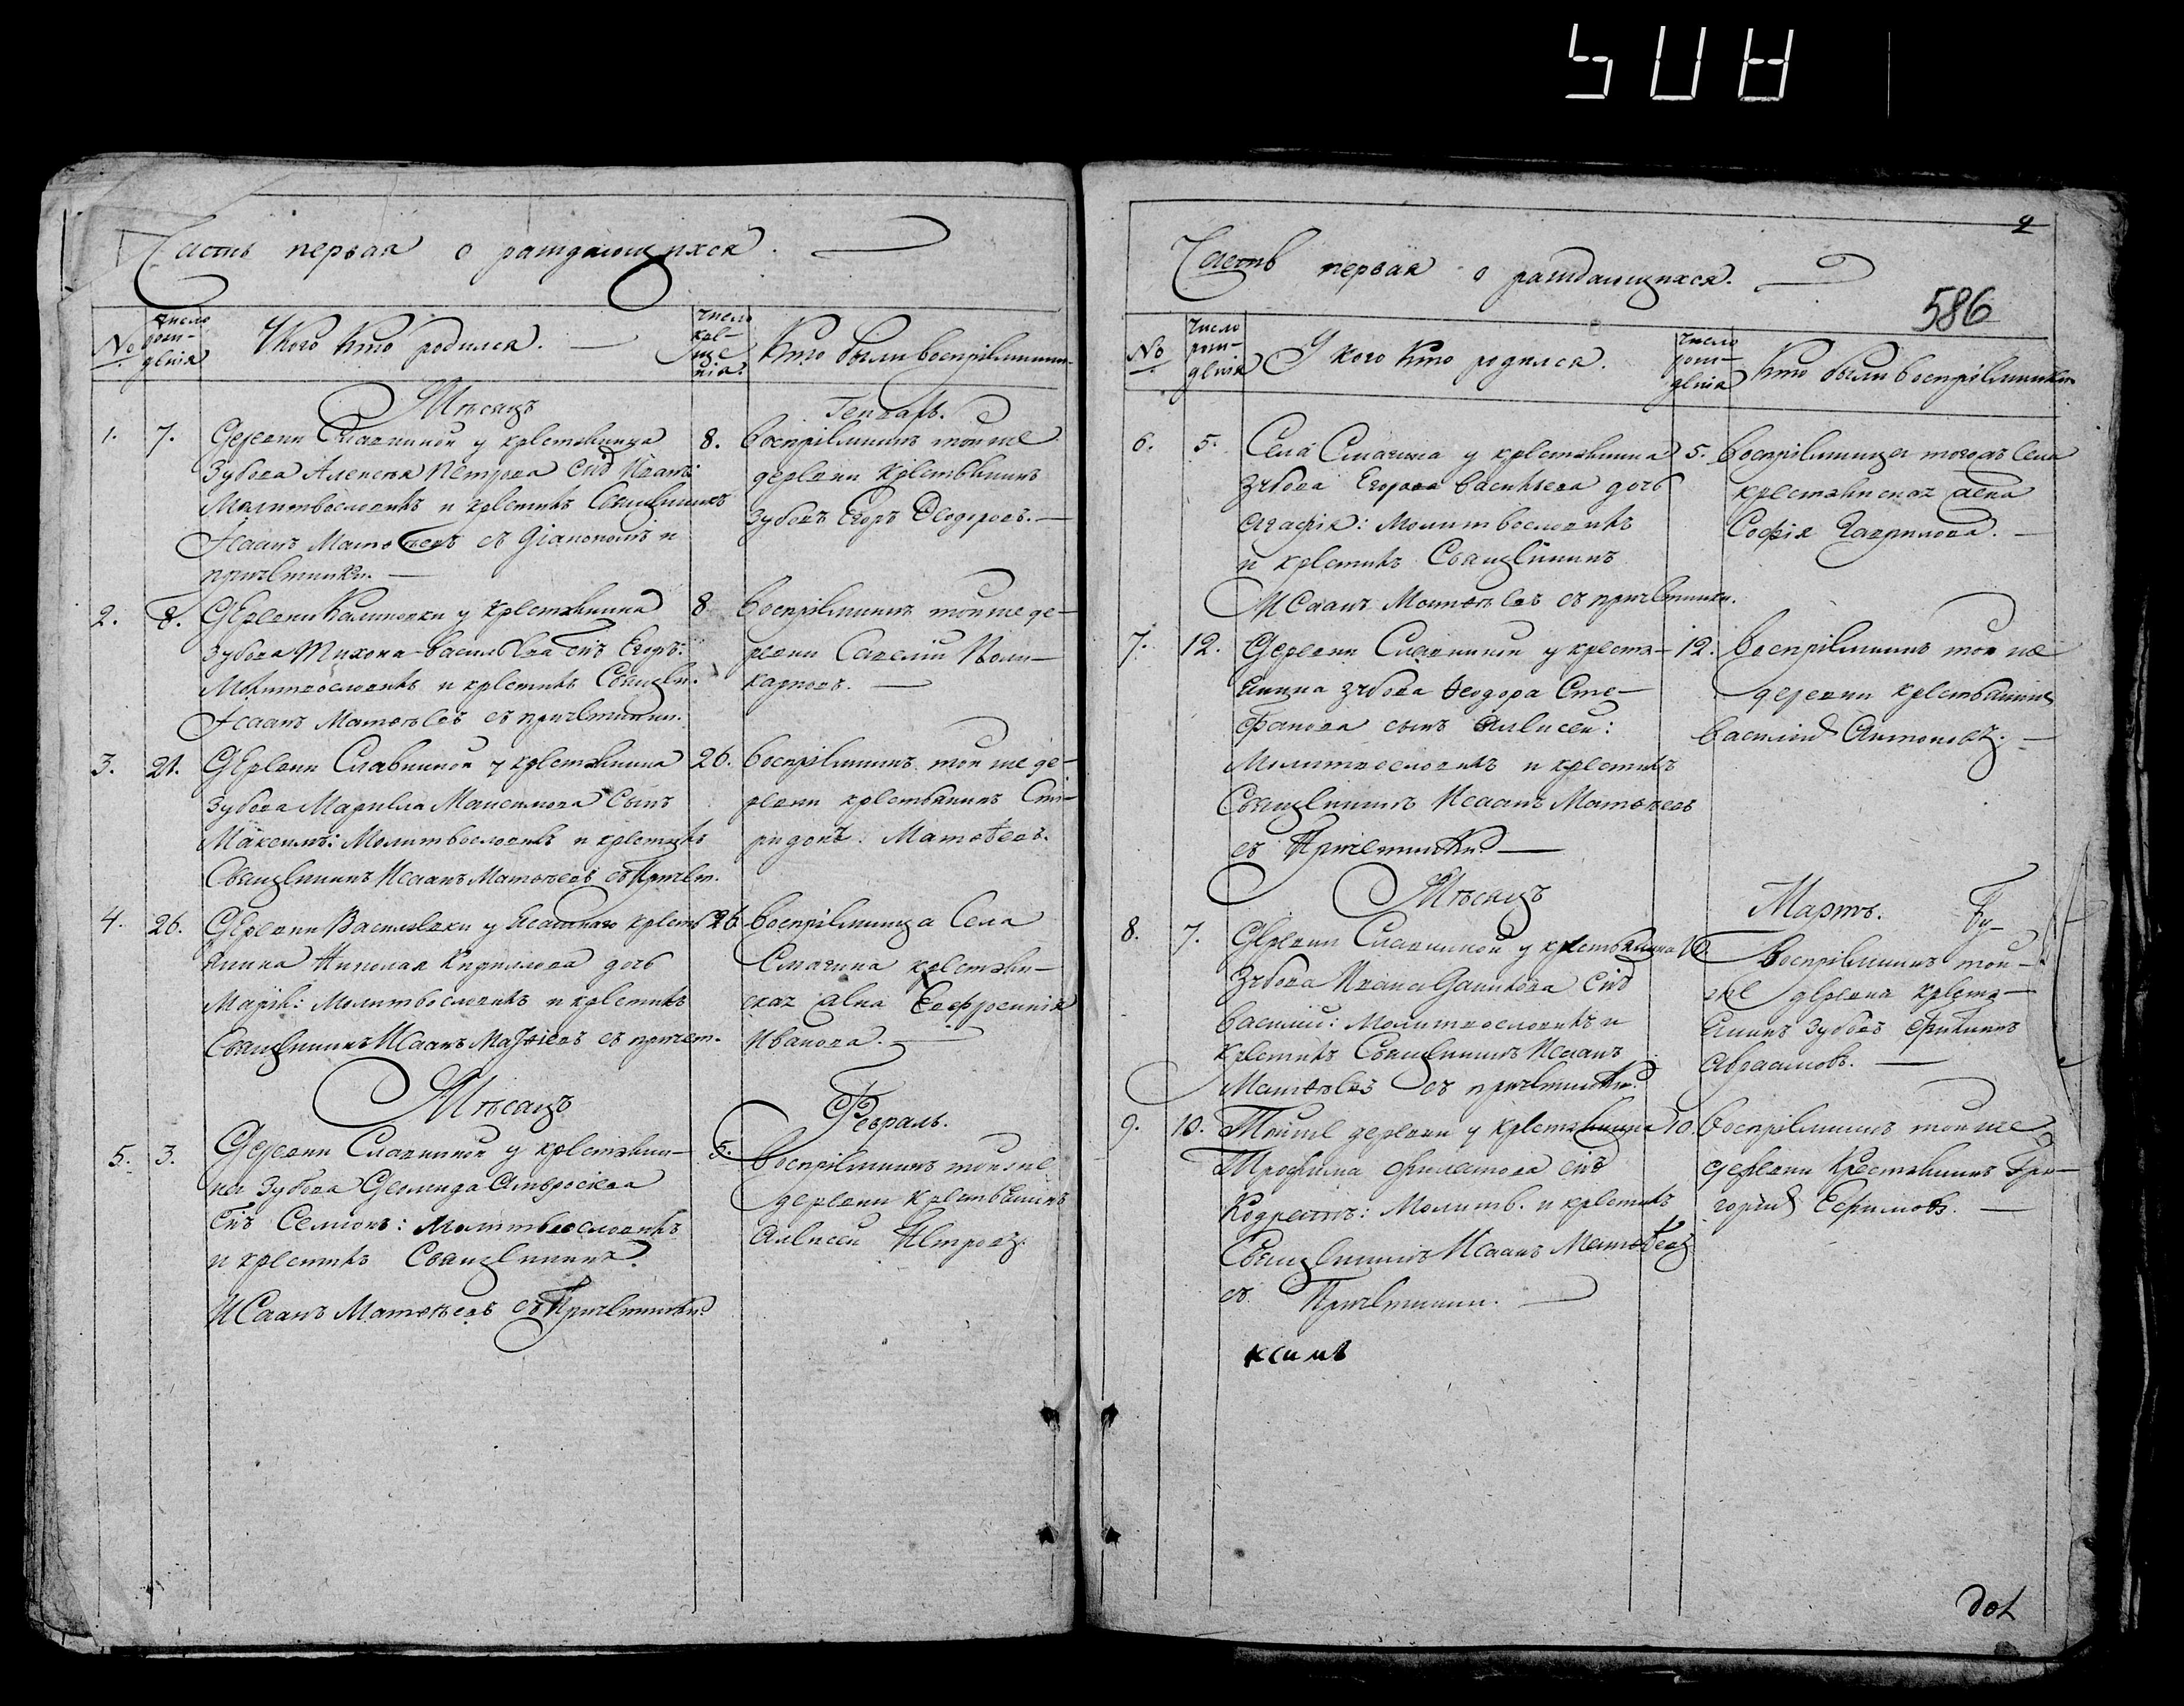 Часть первая о раждающихся.
№
число рож-
денiя
У кого кто родился.
число
кре-
ще
нiя.
Кто были воспрiемники
Мѣсяцъ
Генварь.
1. 7.
Деревни Славниной у крестьянина
Зубова Алексѣя Петрова сынъ Иванъ:
Молитвословилъ и крестилъ Священникъ
Iсаакъ Матѳѣевъ съ Дiакономъ и
причетники.
8.
Воспрiемникъ той же
деревни крестьянинъ
Зубовъ Егоръ Ѳедоровъ.
2. 8.
Деревни Калиновки у крестьянина
Зубова Тихона Васильева сынъ Егоръ:
Молитвословилъ и крестилъ Священ.
Iсаакъ Матѳѣевъ съ причетники.
8
Воспрiемникъ той же де-
ревни Савелiй Поли-
карповъ.
3. 21.
Деревни Славниной у крестьянина
Зубова Максимова сынъ
Максимъ: Молитвословилъ и крестилъ
Священникъ Исаакъ Матѳѣевъ съ Причет.
26.
Воспрiемникъ той же де-
ревни крестьянинъ Спи-
ридонъ Матѳѣевъ.
4. 26.
Деревни Василевки у крестья
янина Николая Кириллова дочь
Марiя: Молитвословилъ и крестилъ
Священникъ Исаакъ Матѳѣевъ съ причет.
26
Воспрiемница Села
Смагина крестьян-
ская жена Евфросинiя
Иванова.
Мѣсяцъ
Февраль.
5. 3.
Деревни Славниной у крестьяни-
на Зубова Леонида Амвросiева
сынъ Семiонъ: Молитвословилъ
и крестилъ Священникъ
Исаакъ Матѳѣевъ съ Причетники
5.
Воспрiемникъ той же
деревни крестьянинъ
Алексѣй Петровъ.
2
Часть первая о раждающихся.
586
№
число
рож-
денiя
У кого кто родился.
число
рож-
денiя
Кто были воспрiемники
6. 5.
Села Смагина у крестьянина
Зубова Егора Васильева дочь
Агафiя: Молитвословилъ
и крестилъ Священникъ
Исаакъ Матѳѣевъ съ причетники.
5.
Воспрiемница тогожъ Села
крестьянская жена
Софiя Гаврилова.
7. 12.
Деревни Славниной у крестья-
янина Зубова Ѳеодора Сте-
фанова сынъ Алексѣй:
Молитвословилъ и крестилъ
Священникъ Исаакъ Матѳѣевъ
съ Причетники.
12.
Воспрiемникъ той же
деревни крестьянинъ
Василiй Антоновъ.
Мѣсяцъ
Мартъ.
8. 7.
Деревни Славниной у крестьянина
Зубова Ивана Данилова сынъ
Василiй: Молитвословилъ и
крестилъ Священникъ Исаакъ
Матѳѣевъ съ причетники.
10
Воспрiемникъ той-
же деревни кресть-
янинъ Зубовъ Филипъ
Авраамовъ.
9. 10.
Тойже деревни у крестьянина
Трофима Филатова сынъ
Кодратъ: Молитв. и крестилъ
Священникъ Исаакъ Матѳѣевъ
съ Причетники.
10.
Воспрiемникъ той же
деревни Крестьянинъ Гри-
горiй Ефимовъ.